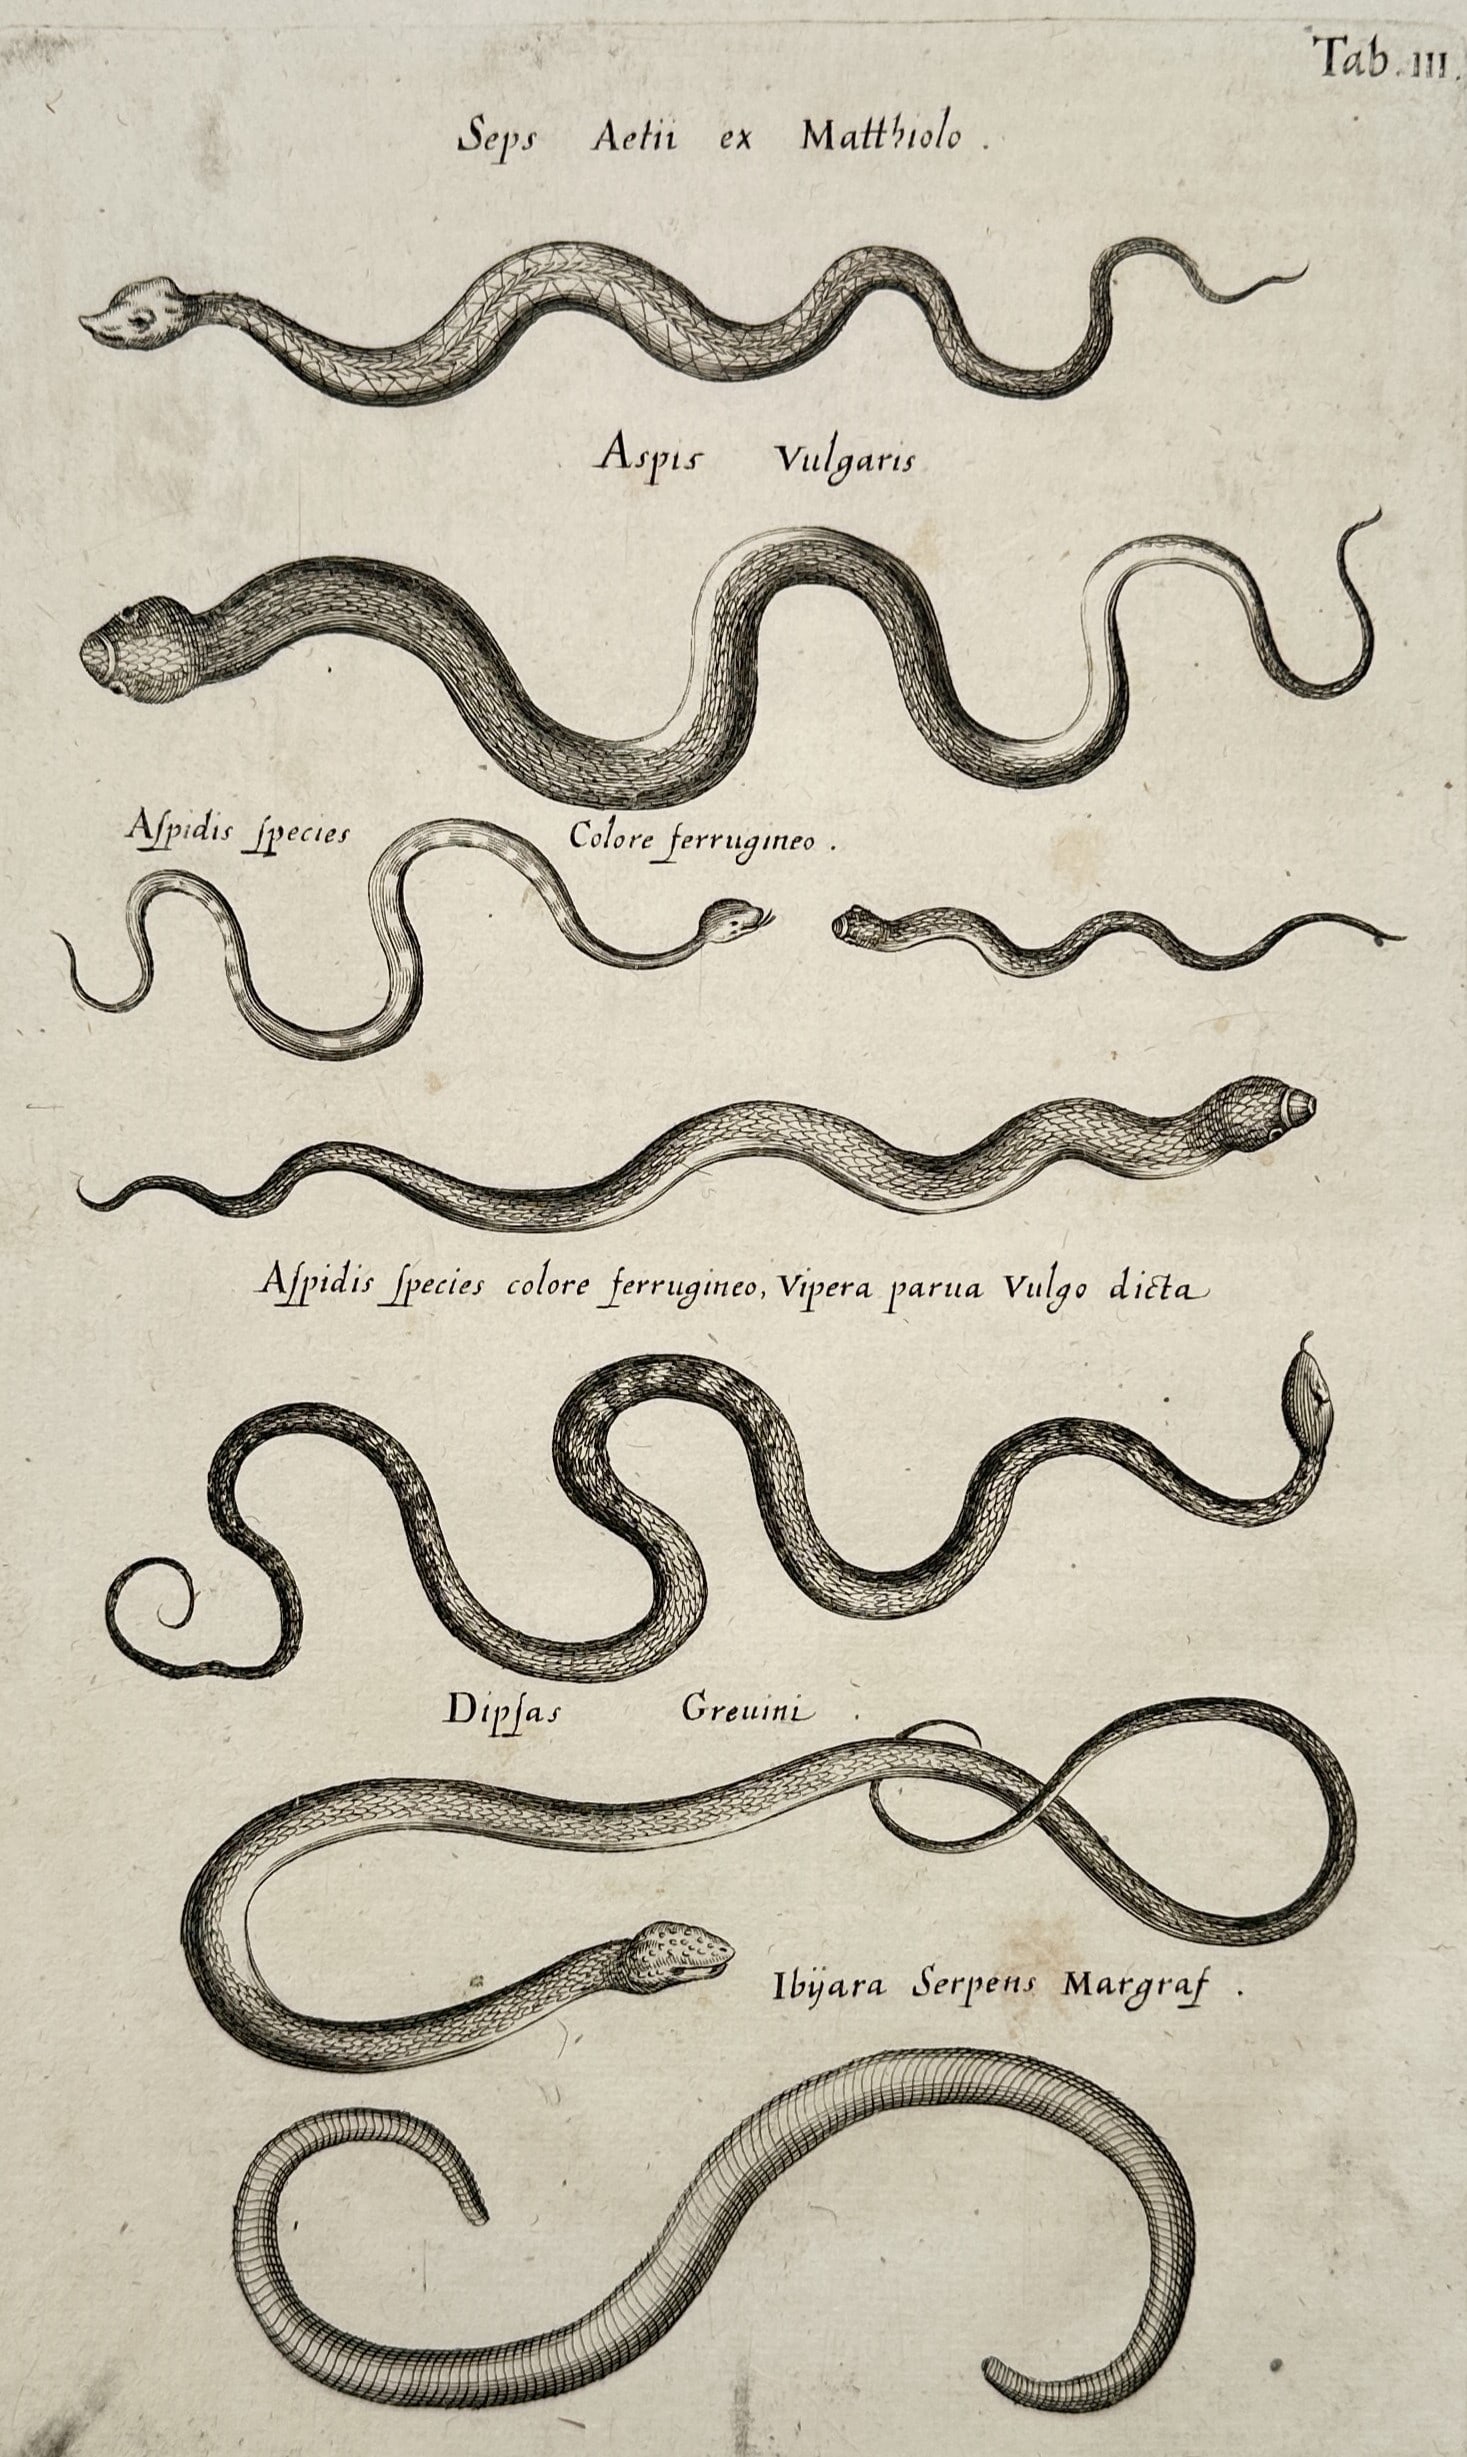 Tab. III.
Seps Aetii ex Matthiolo .
Aspis Vulgaris
Aſpidis ſpecies Colore ferrugineo .
Aſpidis ſpecies colore ferrugineo, Vipera parua Vulgo dicta
Dipſas Greuini .
Ibÿara Serpens Margraf .